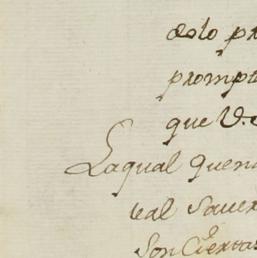 solo pr
prompt
que V.
Laqual quen
real saver
son Ciertas